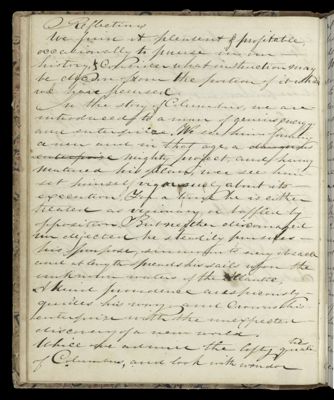 Reflections
We find it pleasent & profitable,
occasionally to pause in our
history, & consider what instruction may
be drawn from the portion of it which
we have perused.
In the story of Columbus, we are
introduced to a man of genius, energy
and enterprise. We see him forming
a new and in that age a
mighty project, and having
matured his plan, we see him
set himself vigorously about its
execution. For a time he is either
treated as a visionary, or baffled by
opposition. But neither discouraged
nor dejected he steadily pursues
his purpose,
and at length spreads his sails upon the
unknown waters of the Atlantic.
A kind providence
guides his way and crowns his
enterprise with the unexpected
discovery of a new world.
While we admire the lofty qualities
of Columbus, and look with wonder